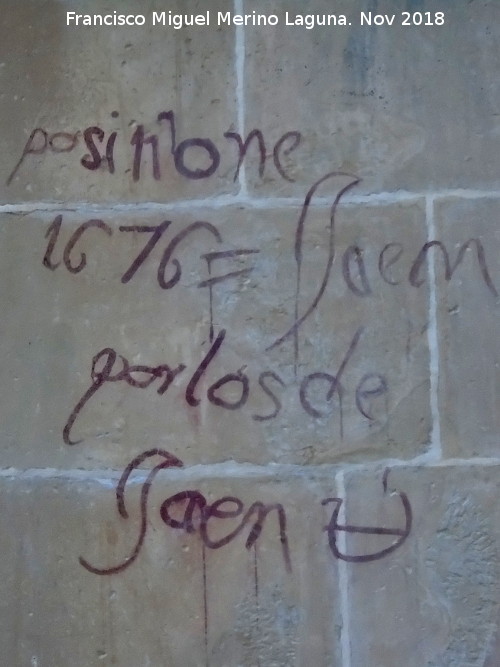 Francisco Miguel Merino Laguna. Nov 2018
1676 = Jaen
por los de
Jaen